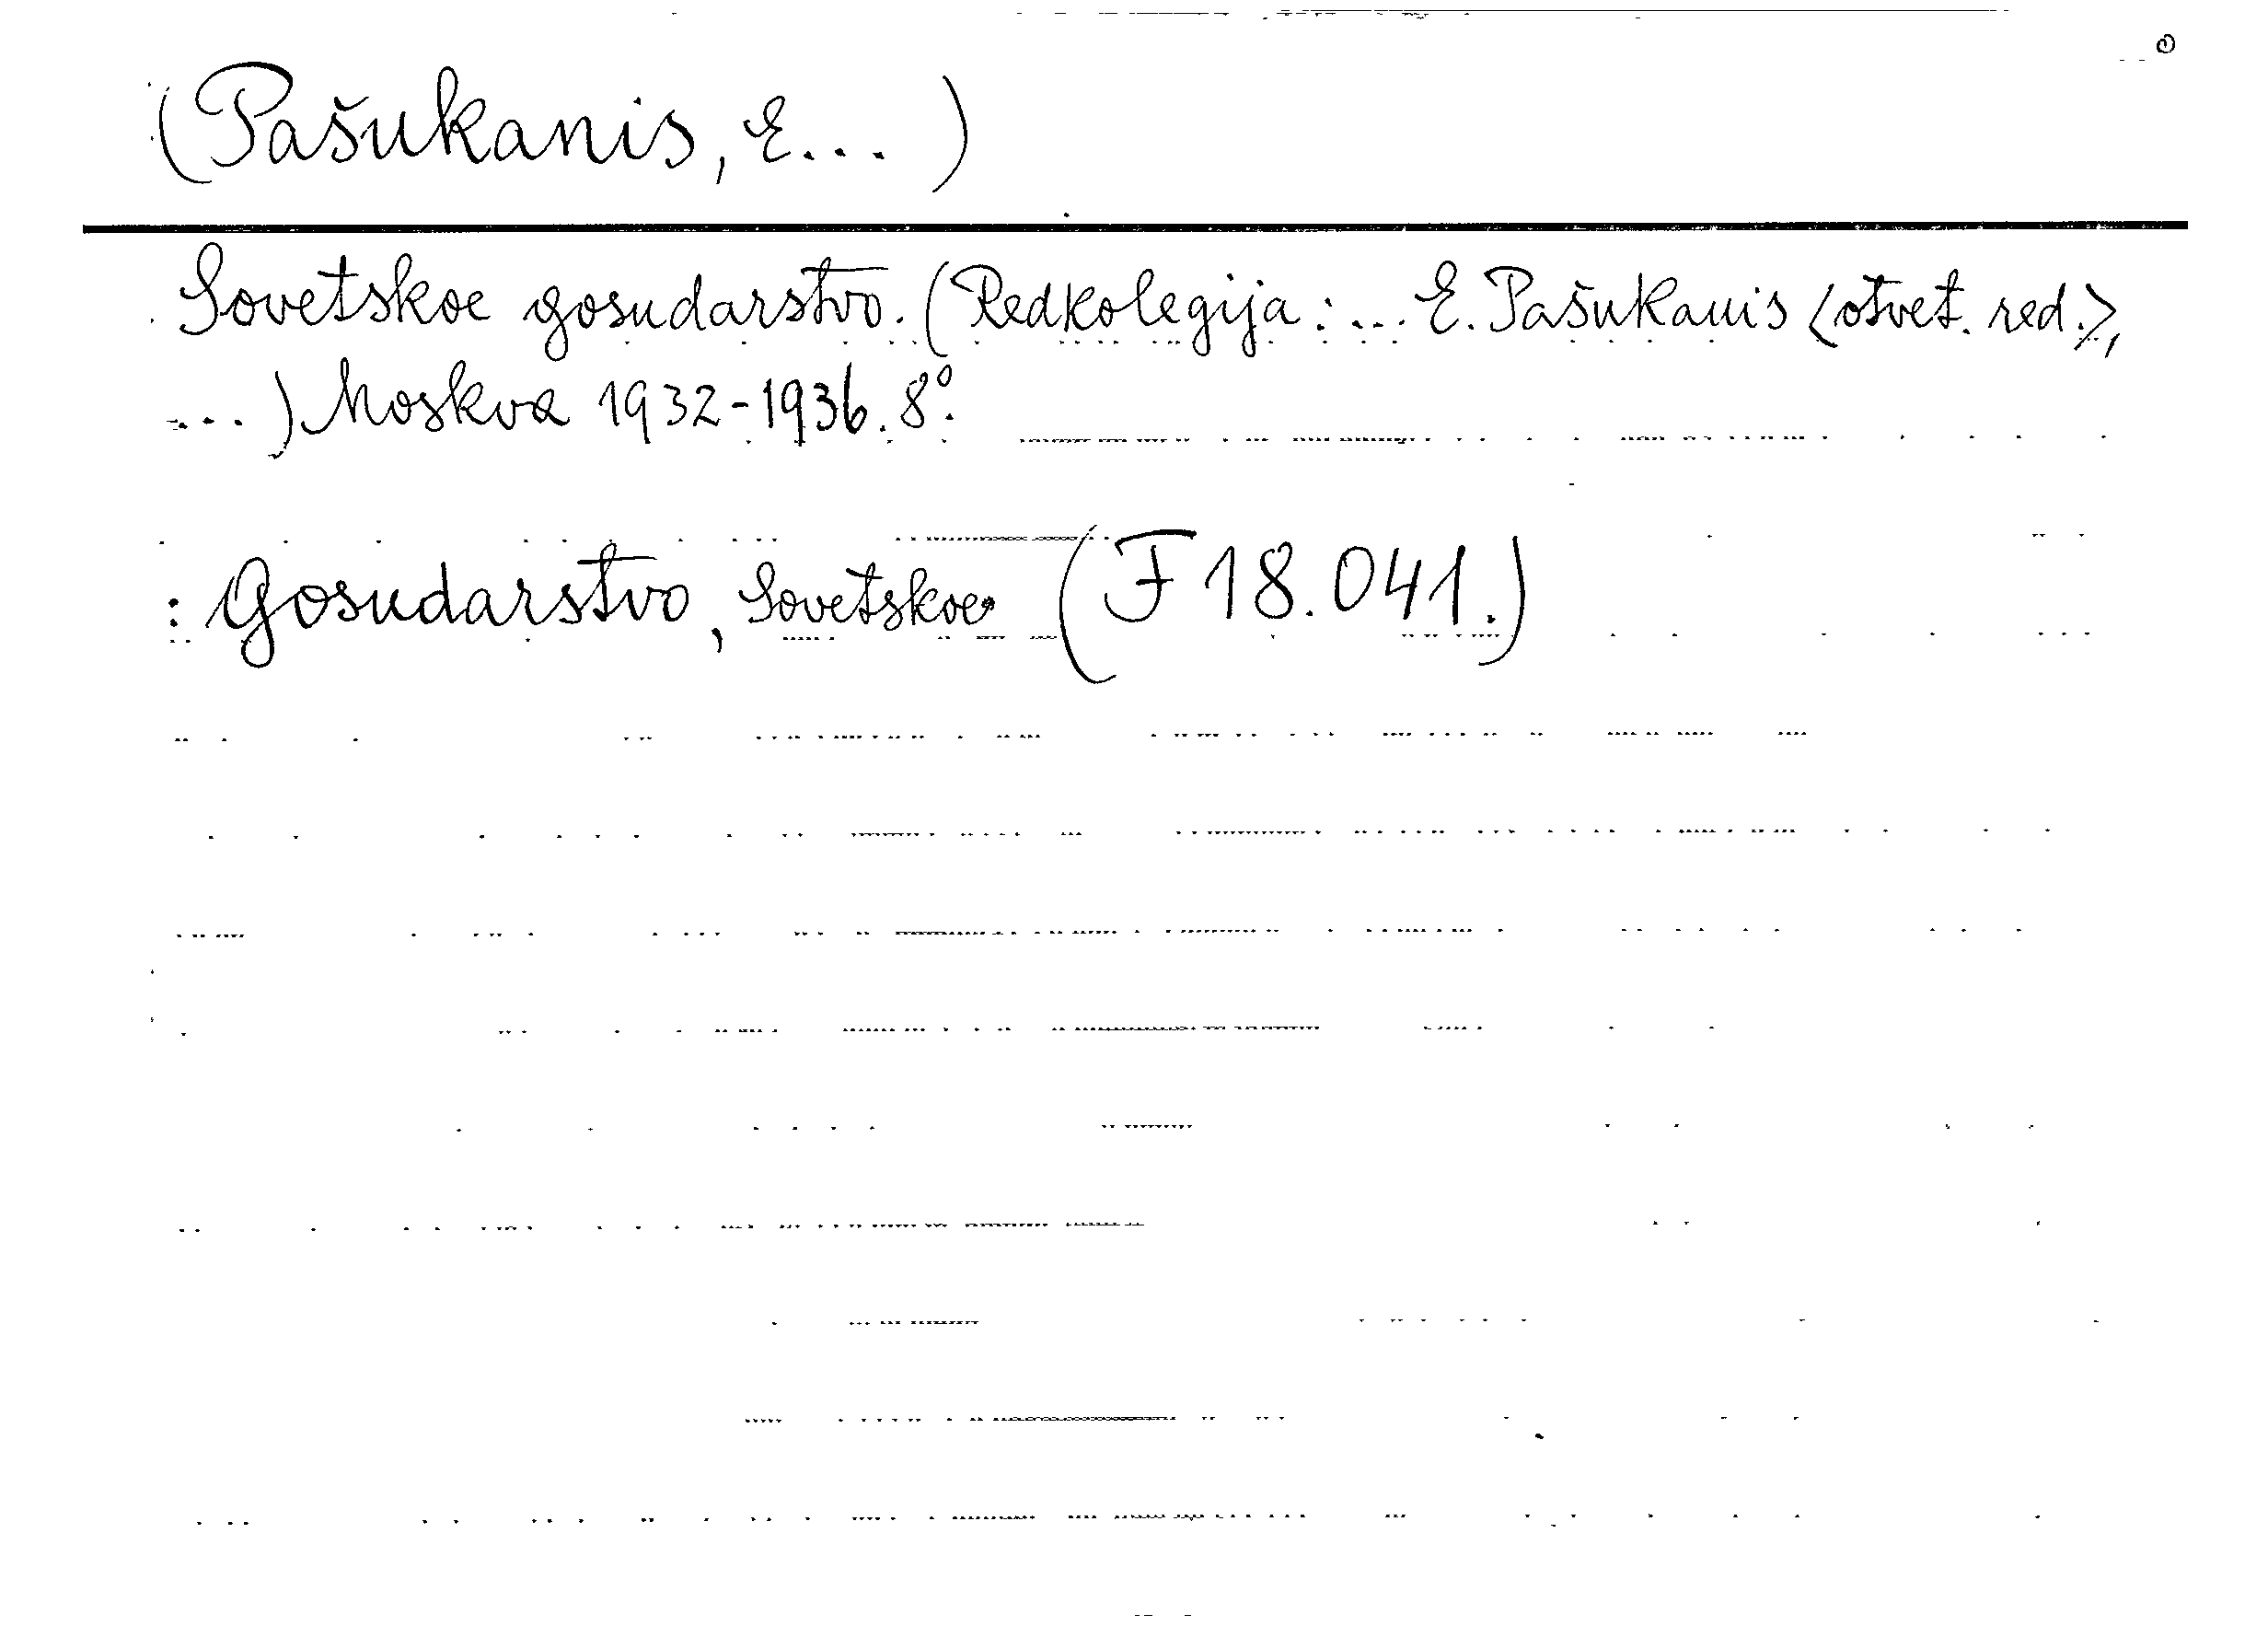 (Pašukanis, E... )
Sovetskoe gosudarstvo. (Redkolegija: ... E. Pašukanis <otvet. red.>,
... ) Moskva 1932-1936. 8°.
: Gosudarstvo, Sovetskoe (F 18.041.)